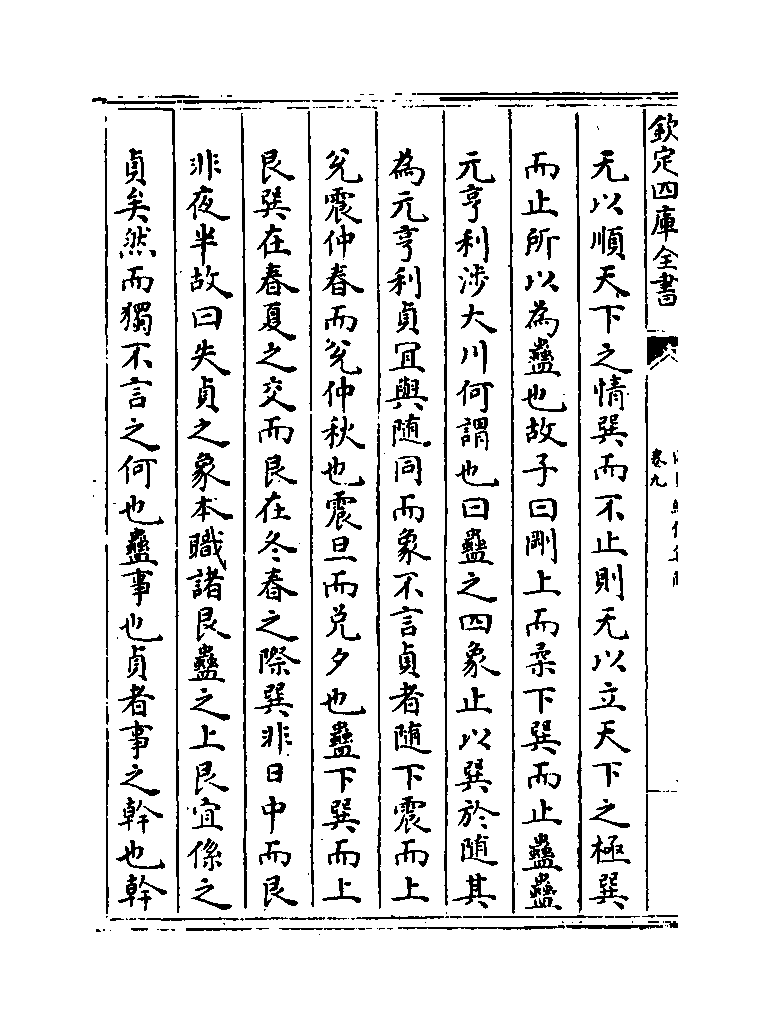 欽定四庫全書
卷九
无以順天下之情巽而不止則无以立天下之極巽
而止所以為蠱也故子曰剛上而柔下巽而止蠱蠱
元亨利涉大川何謂也曰蠱之四象止以巽於随其
為元亨利貞冝與随同而象不言貞者随下震而上
兊震仲春而兊仲秋也震旦而兑夕也蠱下巽而上
艮巽在春夏之交而艮在冬春之際巽非日中而艮
非夜半故曰失貞之象本職諸艮蠱之上艮宜係之
貞矣然而獨不言之何也蠱事也貞者事之幹也幹